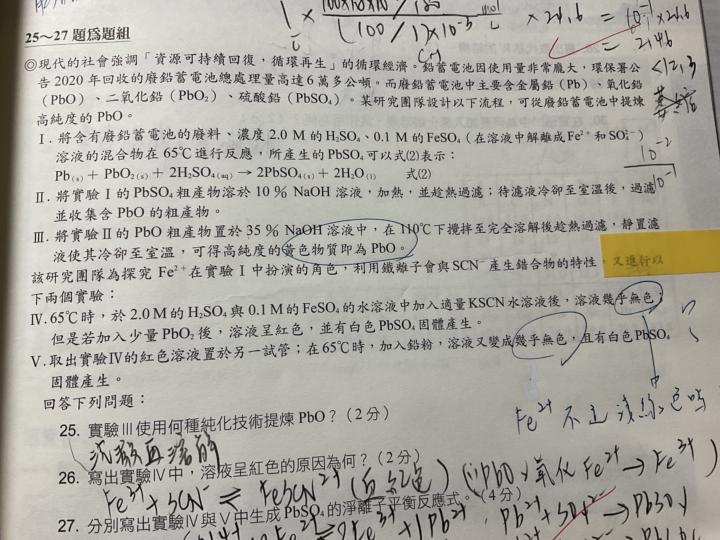 1 × 100×10×10 / 100 mol × 28.6 = 10⁻¹×28.6
(100 / 1)×10⁻³ L = 2.46
25～27 題為題組
<12.3
◎現代的社會強調「資源可持續回復，循環再生」的循環經濟。鉛蓄電池因使用量非常龐大，環保署公
告 2020 年回收的廢鉛蓄電池總處理量高達 6 萬多公噸。而廢鉛蓄電池中主要含金屬鉛（Pb）、氧化鉛
（PbO）、二氧化鉛（PbO₂）、硫酸鉛（PbSO₄）。某研究團隊設計以下流程，可從廢鉛蓄電池中提煉
高純度的 PbO。
Ⅰ. 將含有廢鉛蓄電池的廢料、濃度 2.0 M 的 H₂SO₄、0.1 M 的 FeSO₄（在溶液中解離成 Fe²⁺ 和 SO₄²⁻）
溶液的混合物在 65℃ 進行反應，所產生的 PbSO₄ 可以式⑵表示：
Pb₍s₎ + PbO₂₍s₎ + 2H₂SO₄₍aq₎ → 2PbSO₄₍s₎ + 2H₂O₍l₎ 式⑵
10⁻²
10⁻¹
Ⅱ. 將實驗Ⅰ的 PbSO₄ 粗產物溶於 10 % NaOH 溶液，加熱，並趁熱過濾；待濾液冷卻至室溫後，過濾
並收集含 PbO 的粗產物。
Ⅲ. 將實驗Ⅱ的 PbO 粗產物置於 35 % NaOH 溶液中，在 110℃ 下攪拌至完全溶解後趁熱過濾，靜置濾
液使其冷卻至室溫，可得高純度的黃色物質即為 PbO。
該研究團隊為探究 Fe²⁺ 在實驗Ⅰ中扮演的角色，利用鐵離子會與 SCN⁻ 產生錯合物的特性，又進行以
下兩個實驗：
Ⅳ. 65℃ 時，於 2.0 M 的 H₂SO₄ 與 0.1 M 的 FeSO₄ 的水溶液中加入適量 KSCN 水溶液後，溶液幾乎無色；
但是若加入少量 PbO₂ 後，溶液呈紅色，並有白色 PbSO₄ 固體產生。
Ⅴ. 取出實驗Ⅳ的紅色溶液置於另一試管；在 65℃ 時，加入鉛粉，溶液又變成幾乎無色，且有白色 PbSO₄
固體產生。
回答下列問題：
Fe²⁺ 不是該綠色嗎
25. 實驗Ⅲ使用何種純化技術提煉 PbO？（2 分）
26. 寫出實驗Ⅳ中，溶液呈紅色的原因為何？（2 分）
Fe³⁺ + SCN⁻ ⇌ FeSCN²⁺ (血紅色) (∵PbO₂氧化 Fe²⁺ → Fe³⁺)
27. 分別寫出實驗Ⅳ與Ⅴ中生成 PbSO₄ 的淨離子平衡反應式。（4 分）
Fe³⁺ + 1Pb²⁺ Pb²⁺ + SO₄²⁻ → PbSO₄